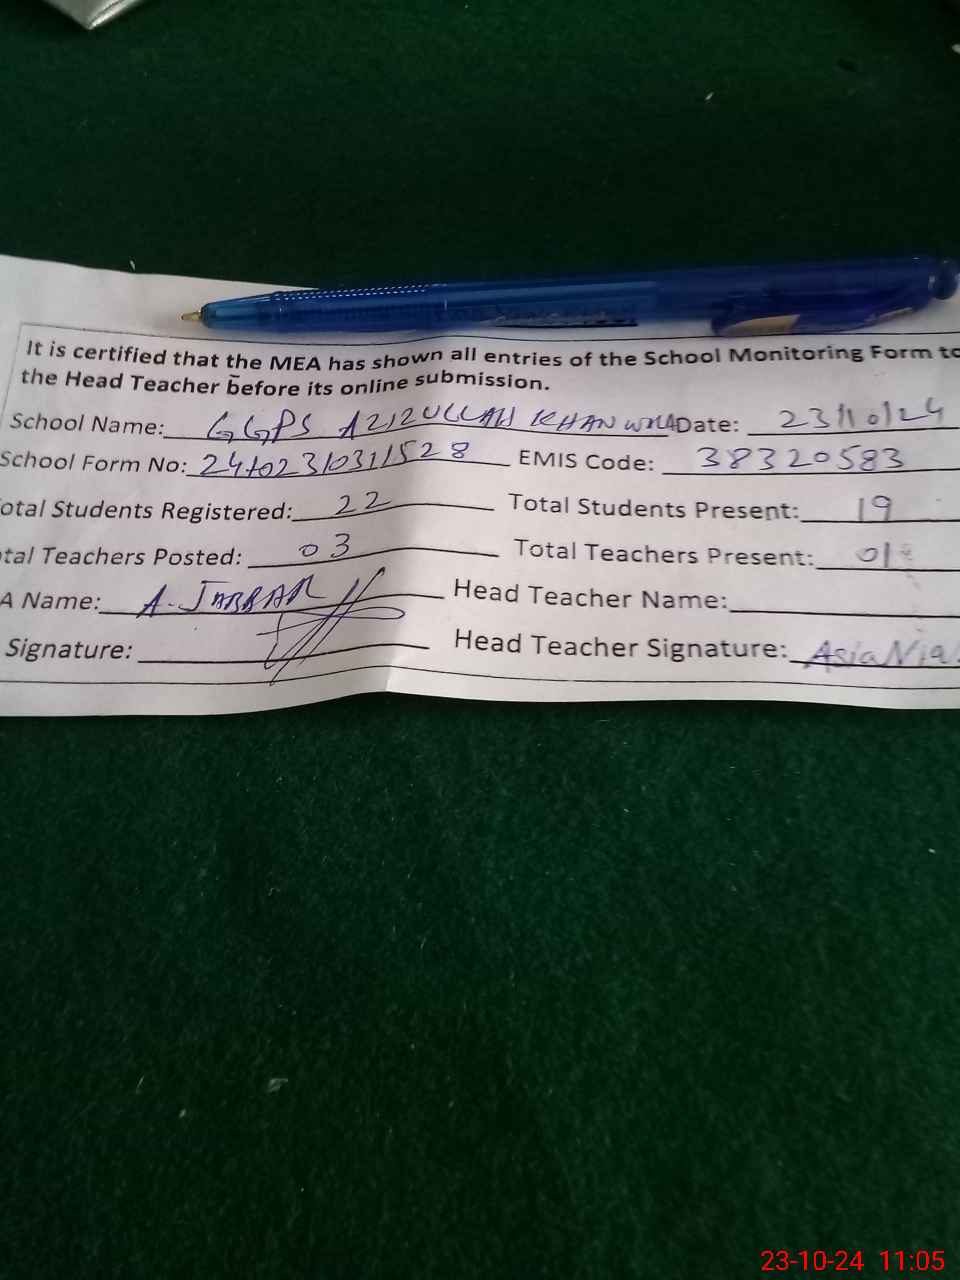 It is certified that the MEA has shown all entries of the School Monitoring Form to
the Head Teacher before its online submission.
School Name: GGPS AZIZULLAH KHAN WALA Date: 23/10/24
School Form No: 24102310311528 EMIS Code: 38320583
otal Students Registered: 22 Total Students Present: 19
tal Teachers Posted: 03 Total Teachers Present: 01
A Name: A. JABBAR Head Teacher Name:
Signature: Head Teacher Signature: Asia
23-10-24 11:05